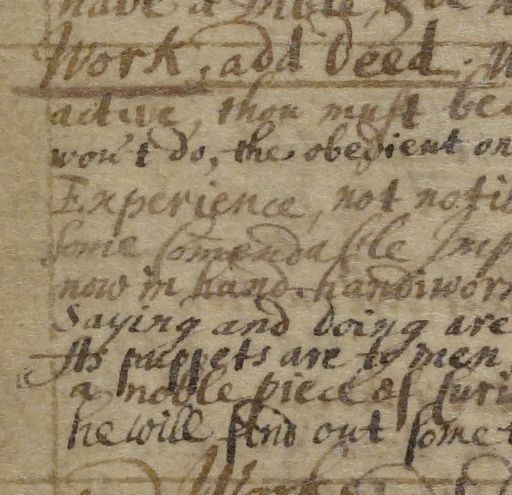 have a
Work, and Deed.
active, thou must be
won't do, the obedient
Experience, not
some Comendable
now in hand. handiwork
Saying and doing are
As puppets are to men
a noble piece of
he will find out some
Work